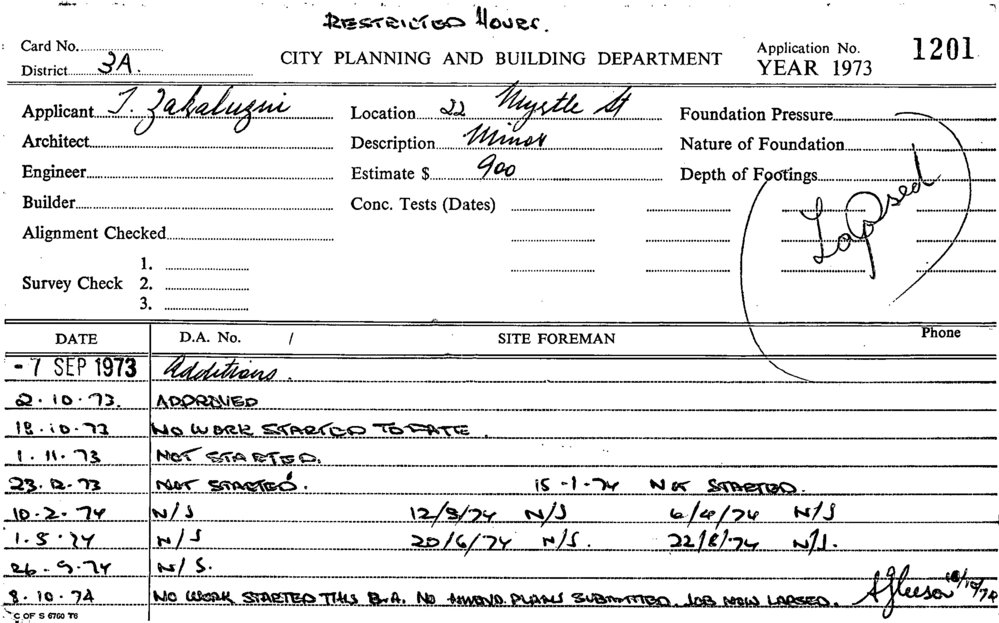 RESTRICTED HOURS.
Card No.
District 3A.
CITY PLANNING AND BUILDING DEPARTMENT
Application No. 1201
YEAR 1973
Applicant T. Zakaluzni
Location 22 Myrtle St
Foundation Pressure
Architect
Description Minor
Nature of Foundation
Engineer
Estimate $ 900
Depth of Footings
Builder
Conc. Tests (Dates)
Lapsed
Alignment Checked
Survey Check 1.
2.
3.
DATE D.A. No. / SITE FOREMAN Phone
- 7 SEP 1973 Additions.
2.10.73. APPROVED
18.10.73 NO WORK STARTED TO DATE.
1.11.73 NOT STARTED.
23.12.73 NOT STARTED. 15-1-74 NOT STARTED.
10.2.74 N/S 12/3/74 N/S 6/4/74 N/S
1.5.74 N/S 20/6/74 N/S. 22/8/74 N/S.
26.9.74 N/S.
8.10.74 NO WORK STARTED THIS B.A. NO AMEND. PLANS SUBMITTED. JOB NOW LAPSED. A Gleeson /10/74
C OF S 6760 T6